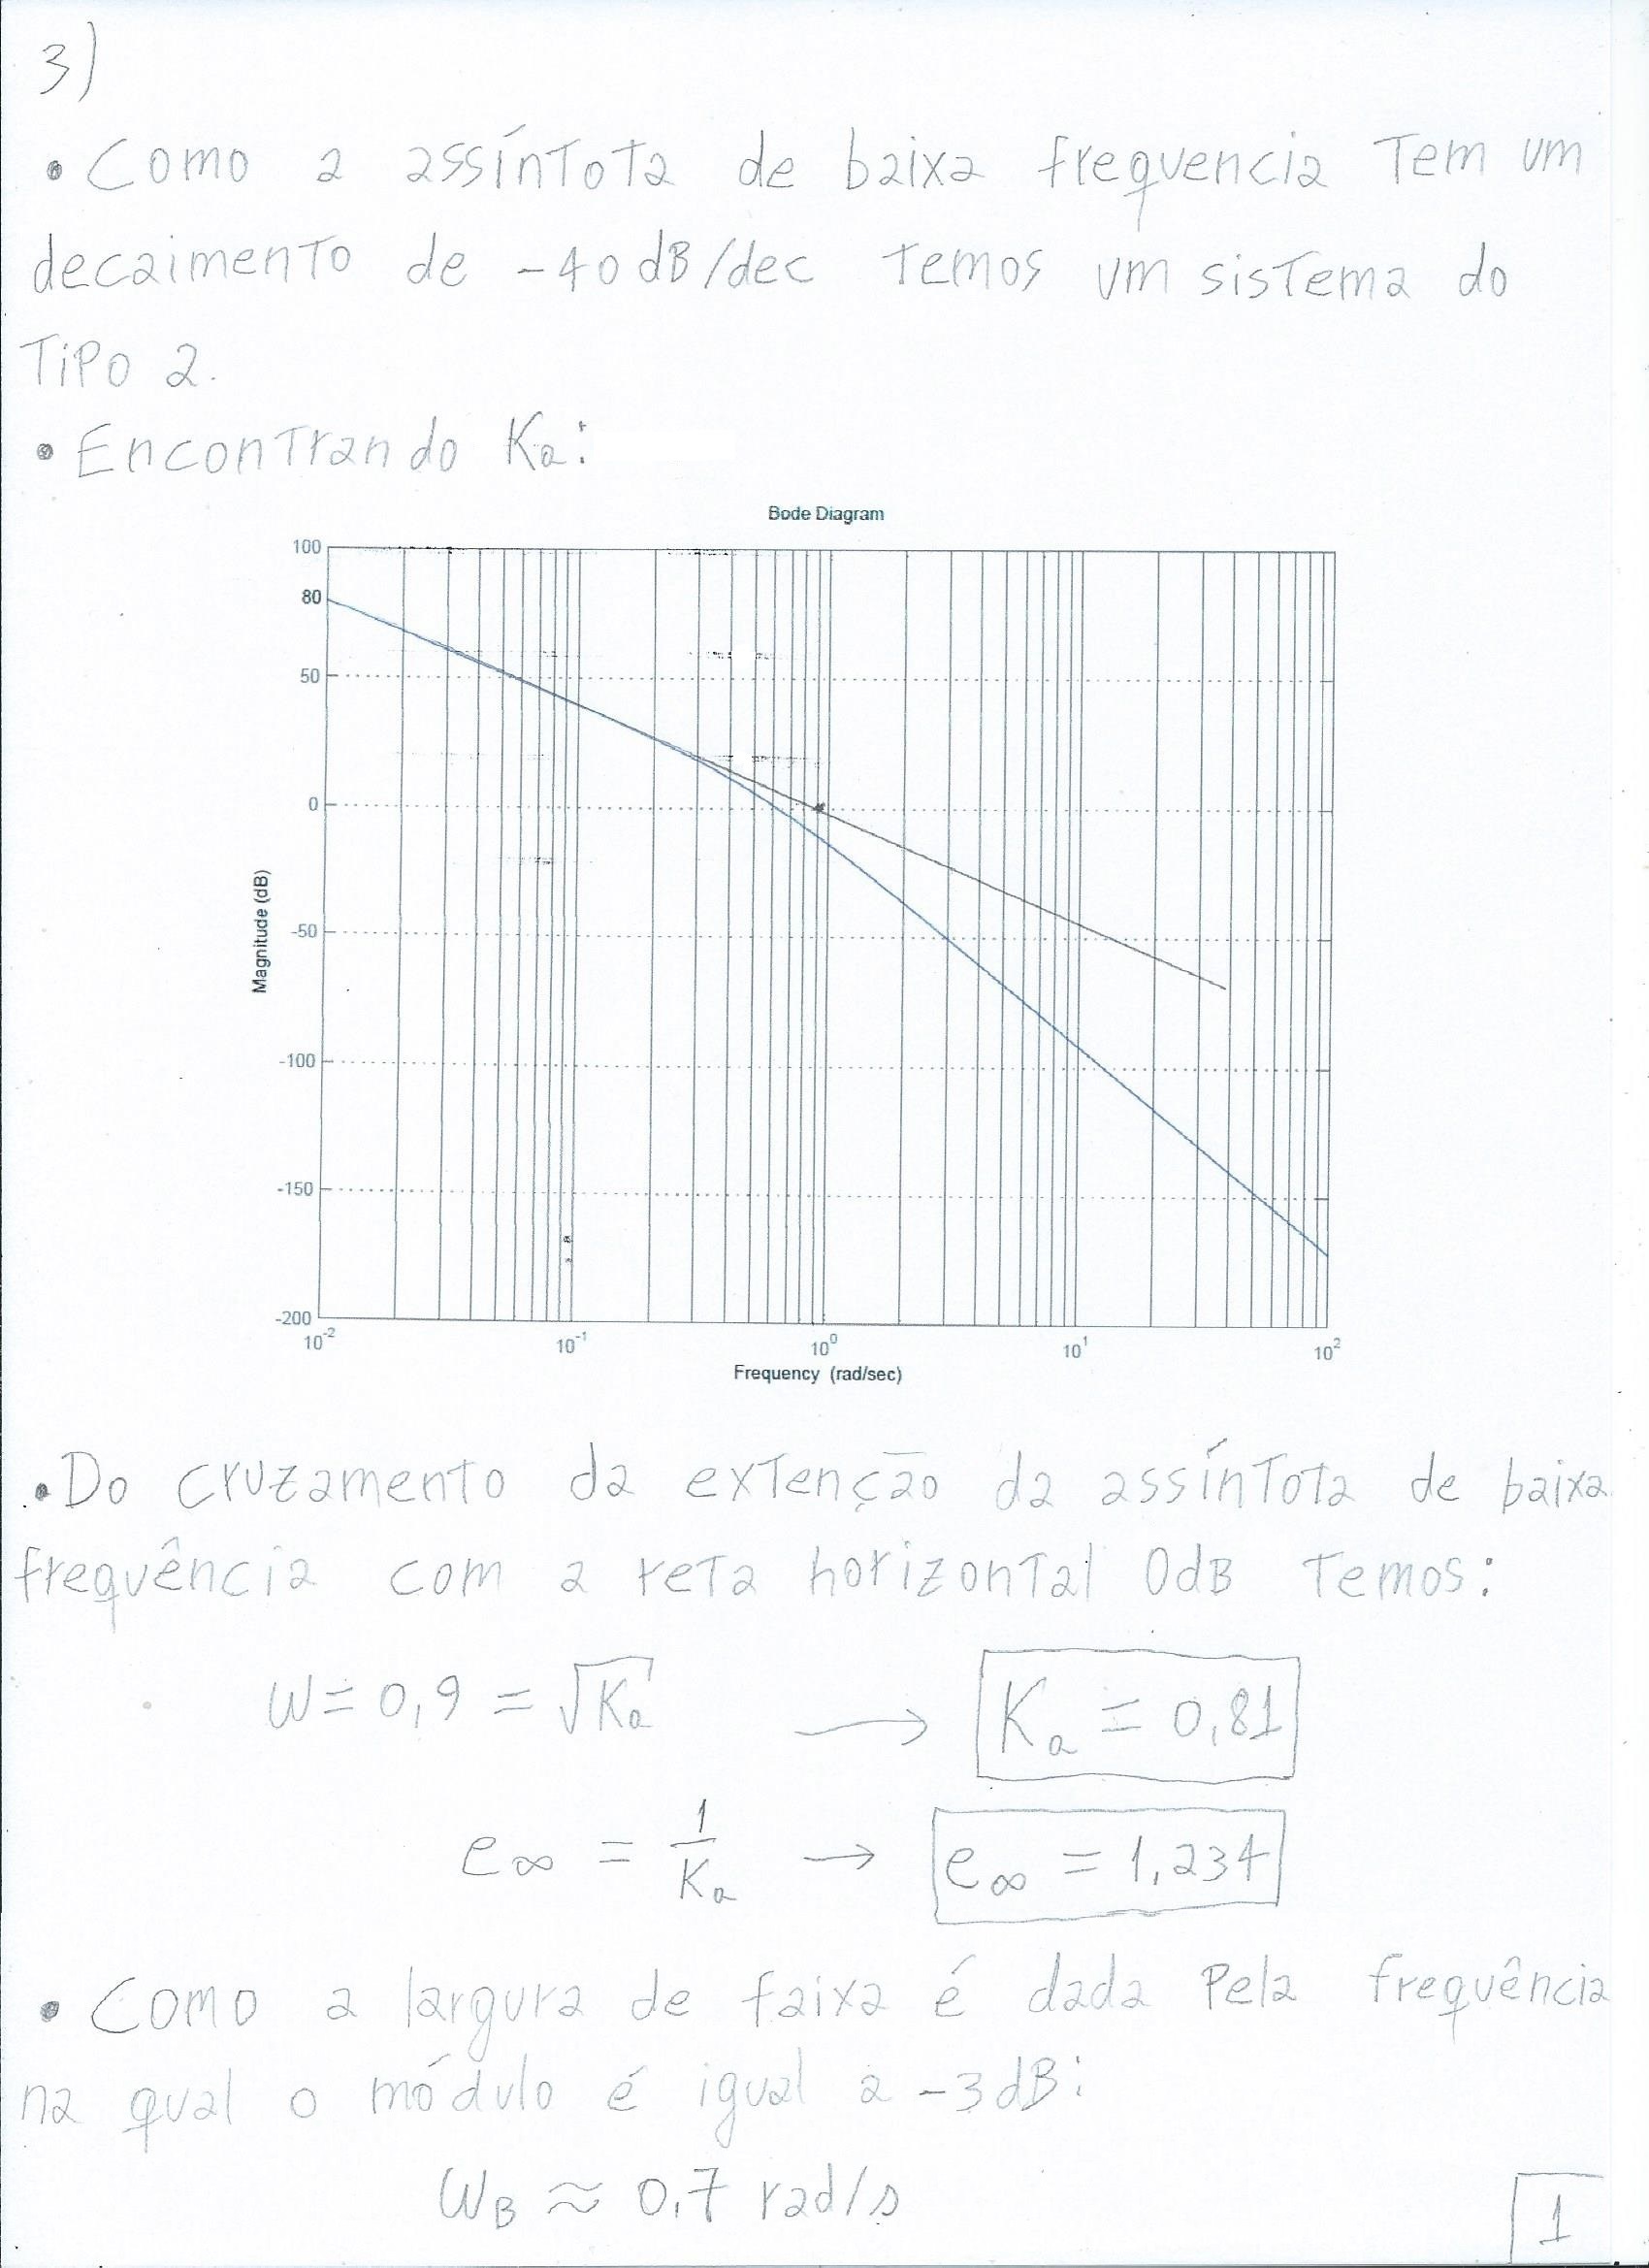 3)
• Como a assíntota de baixa frequencia Tem um
decaimento de -40dB/dec temos um sistema do
Tipo 2.
• Encontrando Ka:
Bode Diagram
100
80
50
0
-50
-100
-150
-200
Magnitude (dB)
10^-2 10^-1 10^0 10^1 10^2
Frequency (rad/sec)
• Do cruzamento da extenção da assíntota de baixa
frequência com a reta horizontal 0dB Temos:
W = 0,9 = √Ka → Ka = 0,81
e∞ = 1/Ka → e∞ = 1,234
• Como a largura de faixa é dada Pela frequência
na qual o módulo é igual a -3dB:
WB ≈ 0,7 rad/s
1